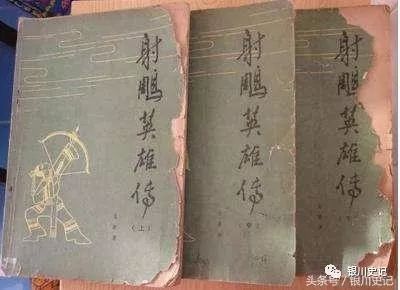 射雕英雄传
（上）
射雕英雄传
（中）
射雕英雄传
头条号／银川史记
银川史记